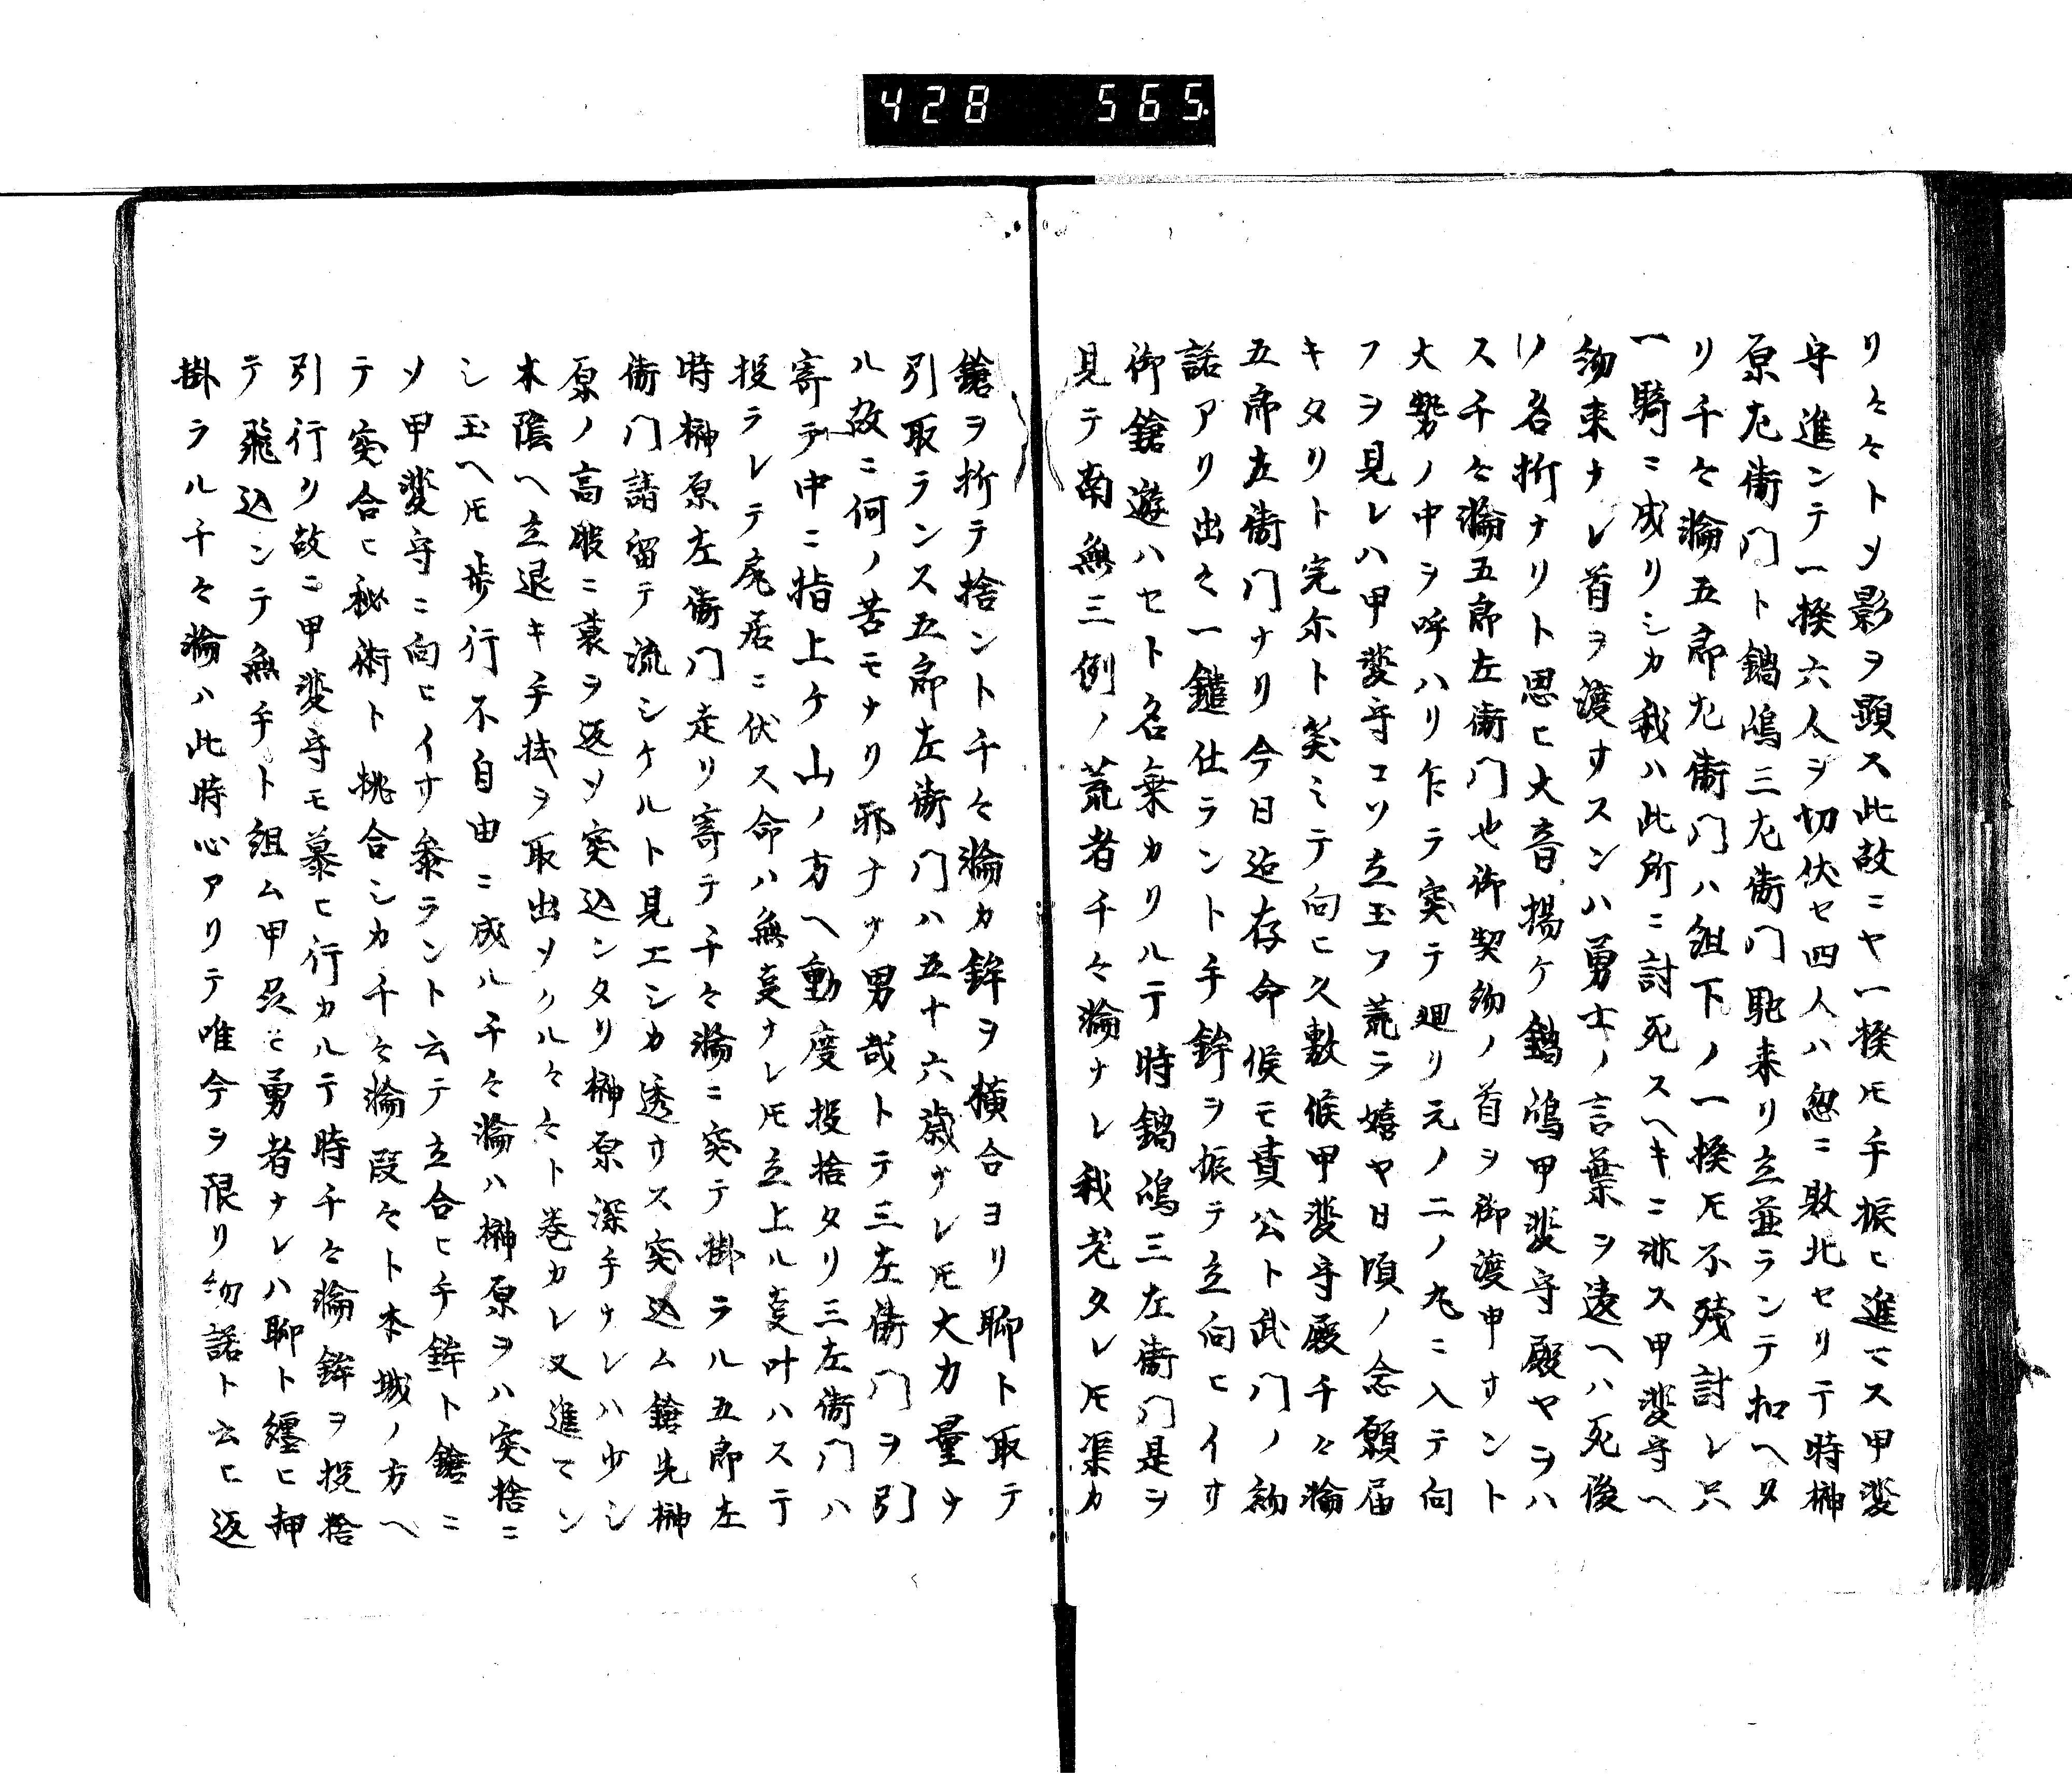 428 565.
リ々々トソ影ヲ顕ス此故ニヤ一揆𪜈手振ヒ進マス甲斐
守進ンテ一揆六人ヲ切伏セ四人ハ忽ニ敗北セリテ時榊
原左衛門ト鍋嶋三左衛門馳来リ立並ランテ扣ヘタ
リ千々輪五郎左衛門ハ組下ノ一揆𪜈不残討レ只
一騎ニ成リシカ我ハ此所ニ討死スヘキニ非ス甲斐守ヘ
約束ナレ首ヲ渡サスンハ勇士ノ言葉ヲ違ヘハ死後
ノ名折ナリト思ヒ大音揚ケ鍋嶋甲斐守殿ヤヲハ
ス千々輪五郎左衛門也御契約ノ首ヲ御渡申サント
大勢ノ中ヲ呼ハリ乍ラ突テ廻リ元ノ二ノ丸ニ入テ向
フヲ見レハ甲斐守コソ立玉フ荒ラ嬉ヤ日頃ノ念願届
キタリト完尓ト笑ミテ向ヒ久敷候甲斐守殿千々輪
五郎左衛門ナリ今日迄存命候モ貴公ト武門ノ約
諾アリ出々一鑓仕ラント手鉾ヲ振テ立向ヒイサ
御鎗遊ハセト名乗カリルテ時鍋嶋三左衛門是ヲ
見テ南無三例ノ荒者千々輪ナレ我老タレ𪜈渠カ
鎗ヲ折テ捨ント千々輪カ鉾ヲ横合ヨリ聊ト取テ
引取ランス五郎左衛門ハ五十六歳ナレ𪜈大力量ナ
ル故ニ何ノ苦モナリ邪ナサ男哉トテ三左衛門ヲ引
寄テ中ニ指上ケ山ノ方ヘ動度投捨タリ三左衛門ハ
投ラレテ尾居ニ伏ス命ハ無叓ナレ𪜈立上ル叓叶ハステ
時榊原左衛門走リ寄テ千々輪ニ突テ掛ラル五郎左
衛門請留テ流シケルト見エシカ透サス突込ム鎗先榊
原ノ高股ニ裏ヲ返ソ突込ンタリ榊原深手ナレハ少シ
木陰ヘ立退キ手拭ヲ取出ソクル々々ト巻カレ又進マン
シ玉ヘ𪜈歩行不自由ニ成ル千々輪ハ榊原ヲハ突捨ニ
ソ甲斐守ニ向ヒイサ参ラント云テ立合ヒ手鉾ト鎗ニ
テ突合ヒ秘術ト挑合シカ千々輪段々ト本城ノ方ヘ
引行リ故ニ甲斐守モ慕ヒ行カルテ時千々輪鉾ヲ投捨
テ飛込ンテ無手ト組ム甲斐モ勇者ナレハ聊ト纏ヒ押
掛ラル千々輪ハ此時心アリテ唯今ヲ限リ約諾ト云ヒ返